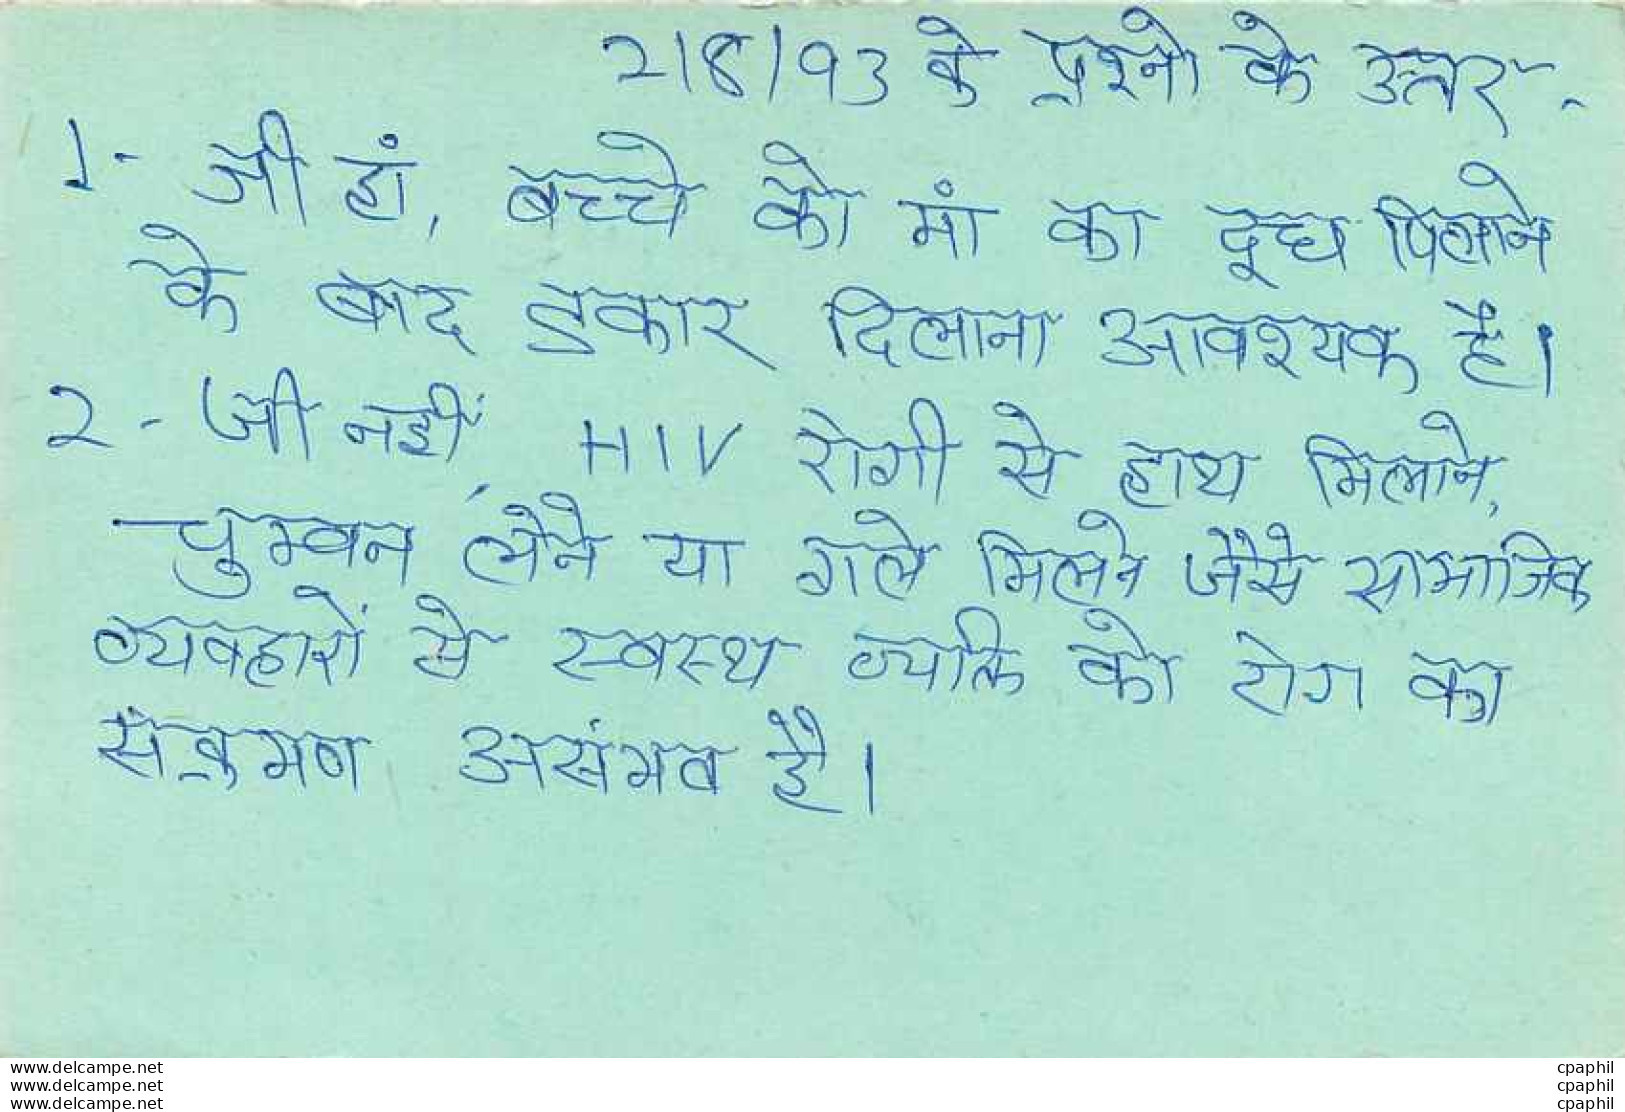 2/8/93 के प्रश्नो के उत्तर -
1- जी हां, बच्चे को मां का दूध पिलाने
के बाद डकार दिलाना आवश्यक है।
2 - जी नहीं, HIV रोगी से हाथ मिलाने,
चुम्वन लेने या गले मिलने जैसे सामाजिक
व्यवहारों से स्वस्थ व्यक्ति को रोग का
संक्रमण असंभव है।
www.delcampe.net
www.delcampe.net
www.delcampe.net
cpaphil
cpaphil
cpaphil